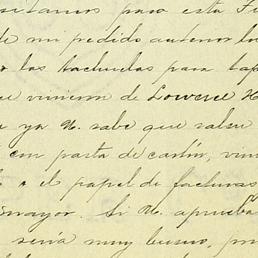 sitamos para esta Fi
de mi pedido anterior lo
o las tachuelas para tap
ue vinieron de Lowene H
a ya U. sabe que salen
con pasta de cartón, vin
o a el papel de facturas
smayor. Si U. aprueba
sería muy bueno, po